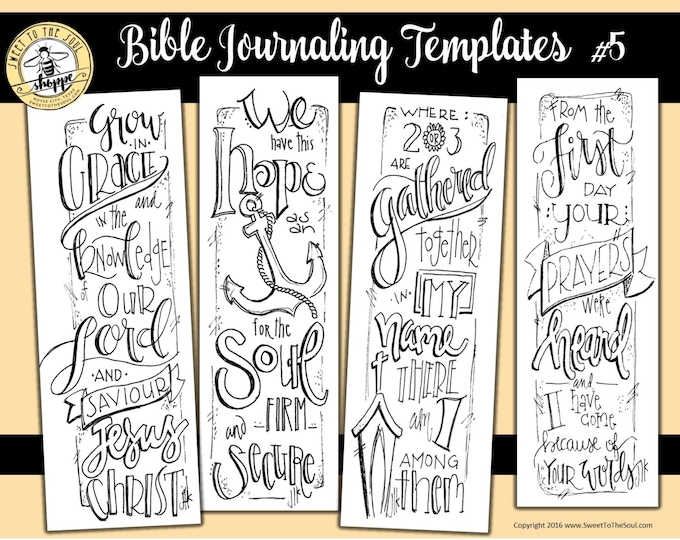 SWEET TO THE SOUL
shoppe
SWEETTOTHESOUL.COM
Bible Journaling Templates #5
Grow
IN
GRACE
and
in the
knowledge
of OUR
Lord
AND
SAVIOUR
Jesus
CHRIST
We
have this
hope
as
an
for the
Soul
FIRM
and
SECURE
WHERE:
2 OR 3
ARE
gathered
together
IN MY
Name
THERE
am I
AMONG
them
FROM the
First
DAY
YOUR
PRAYERS
were
heard
and
I have
come
because of
YOUR WORDS
Copyright 2016 www.SweetToTheSoul.com